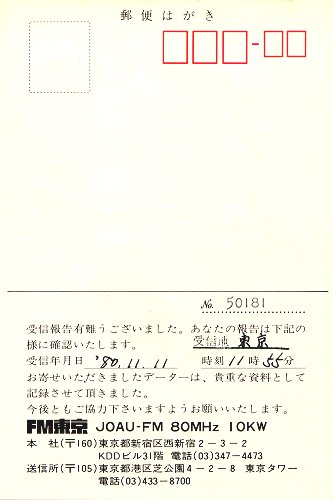 郵便はがき
No. 50181
受信報告有難うございました。あなたの報告は下記の
様に確認いたします。 受信地 東京
受信年月日 '80.11.11 時刻 11時55分
お寄せいただきましたデーターは、貴重な資料として
記録させて頂きました。
今後ともご協力下さいますようお願いいたします。
FM東京 JOAU-FM 80MHz 10KW
本 社(〒160)東京都新宿区西新宿2-3-2
KDDビル31階 電話(03)347-4473
送信所(〒105)東京都港区芝公園4-2-8 東京タワー
電話(03)433-8700